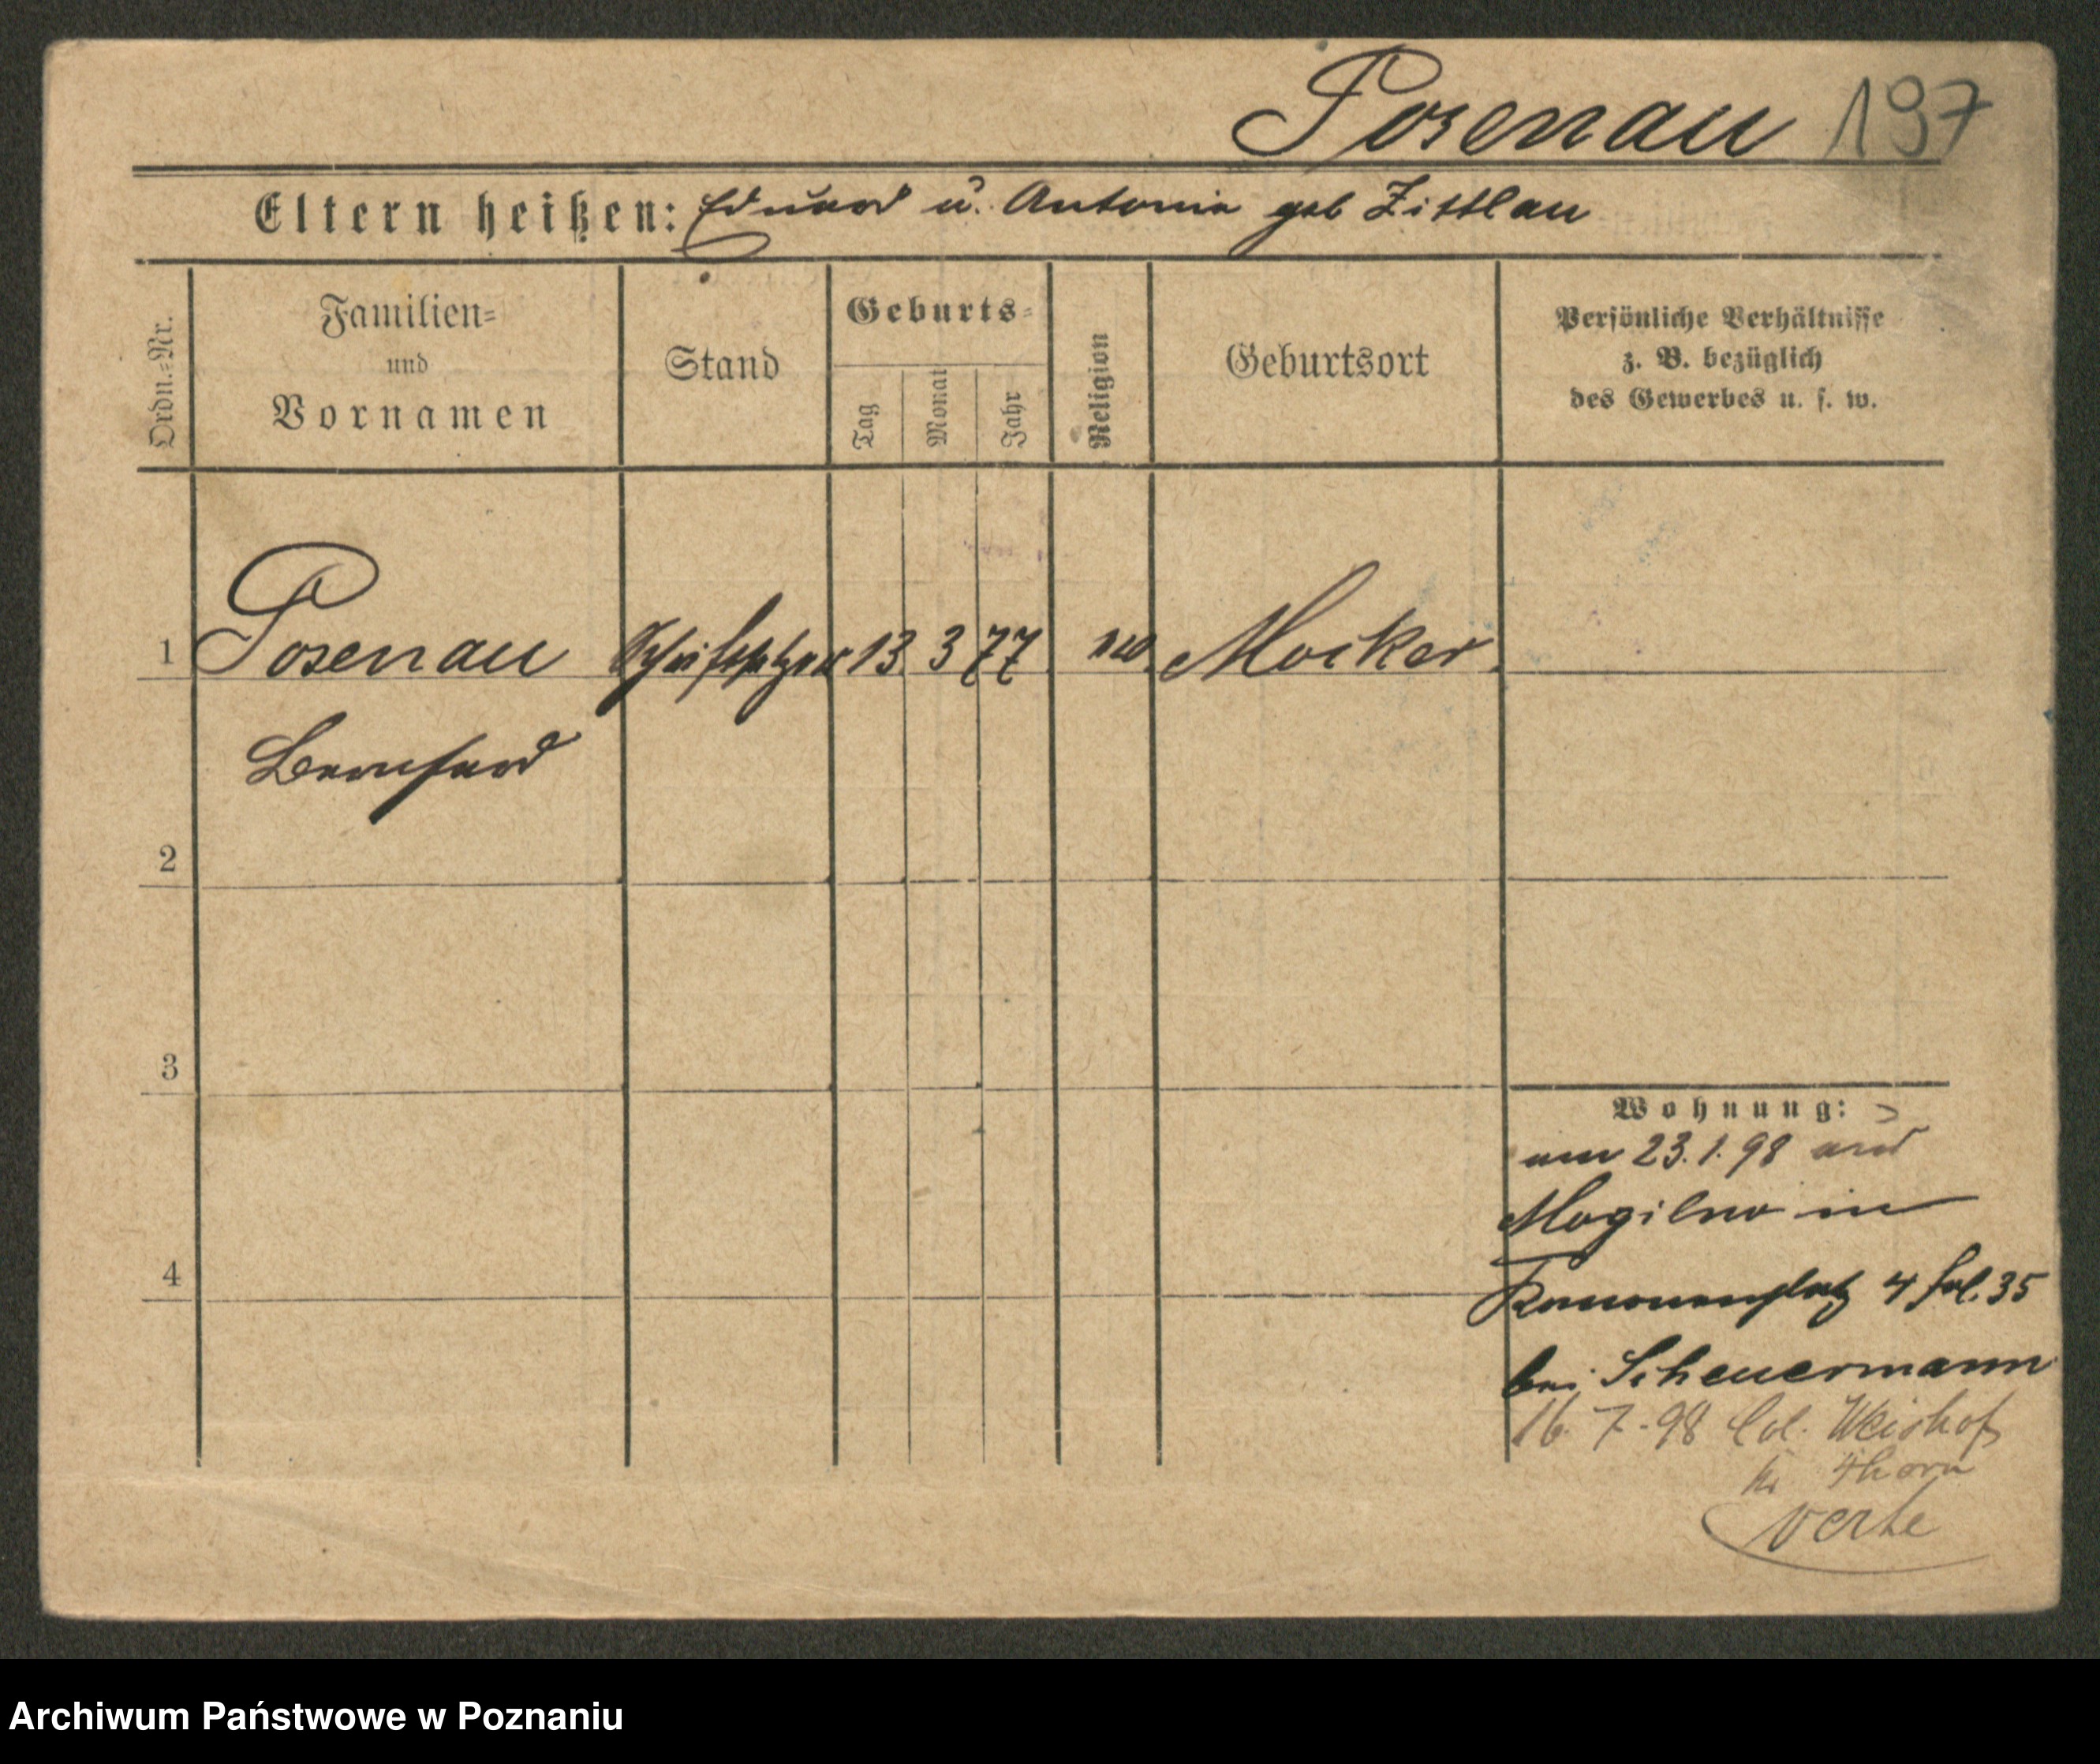 Posenau 197
Eltern heißen: Eduard u. Antonie geb Zittlau
Ordn.=Nr.
Familien=
und
Vornamen
Stand
Geburts=
Tag
Monat
Jahr
Religion
Geburtsort
Persönliche Verhältnisse
z. B. bezüglich
des Gewerbes u. s. w.
1 Posenau Schriftsetzer 13 3 77 Mocker
Bernhard
2
3
4
Wohnung:
am 23.1.98 aus
Mogilno in
Kanonenplatz 4 fol. 35
bei Scheuermann
16. 7. 98 Col. Weishof
Kr Thorn
verte
Archiwum Państwowe w Poznaniu